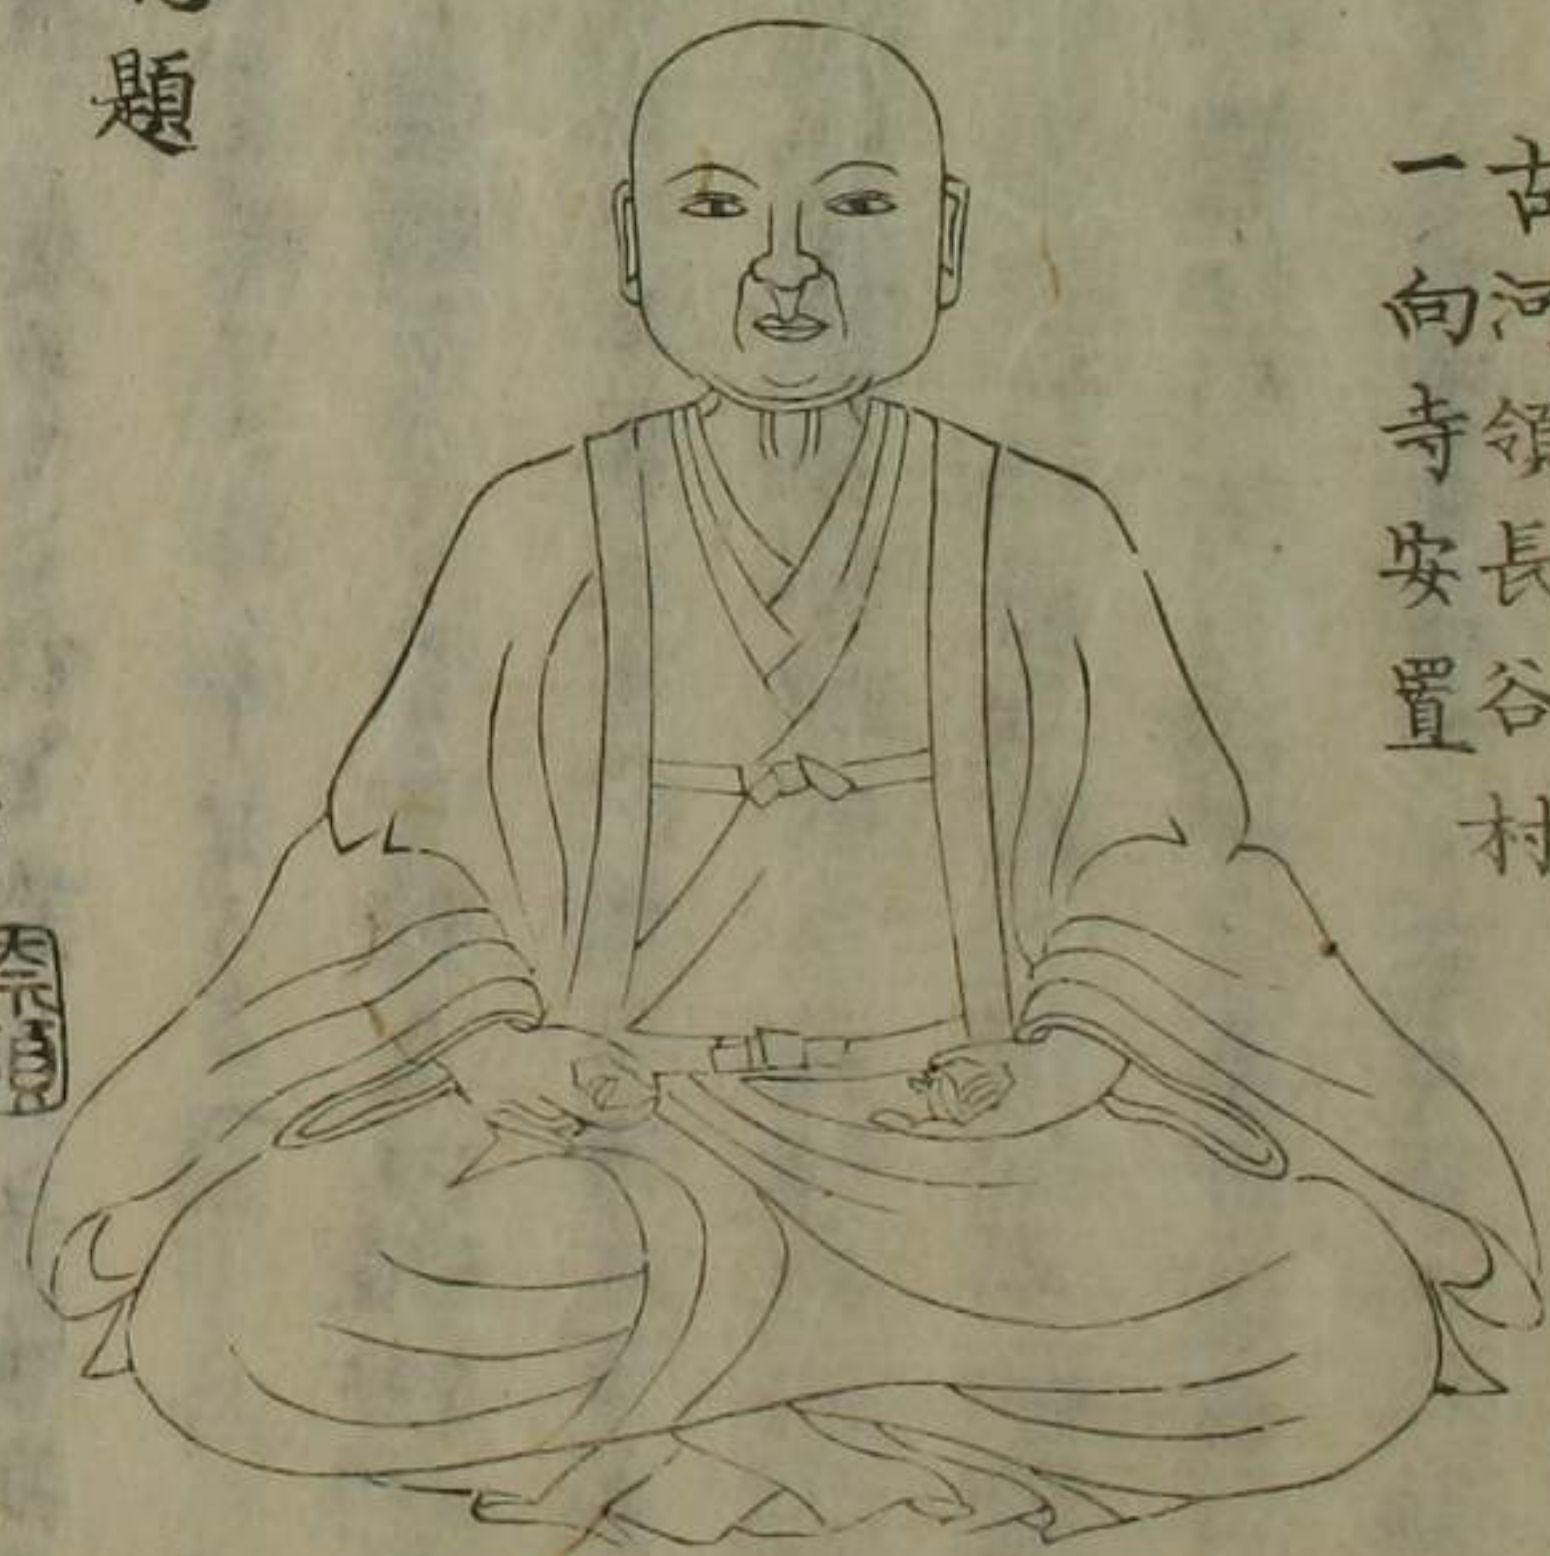 古河領長谷村
一向寺安置
題